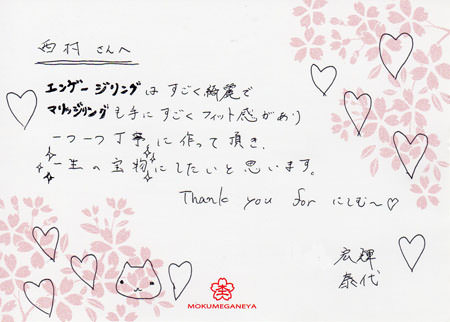 西村 さんへ
エンゲージリングは すごく 綺麗で
マリッジリングも手に すごく フィット感があり
一つ一つ丁寧に 作って 頂き、
一生の宝物に したいと 思います。
Thank you for にしむ〜♡
宏輝
泰代
MOKUMEGANEYA